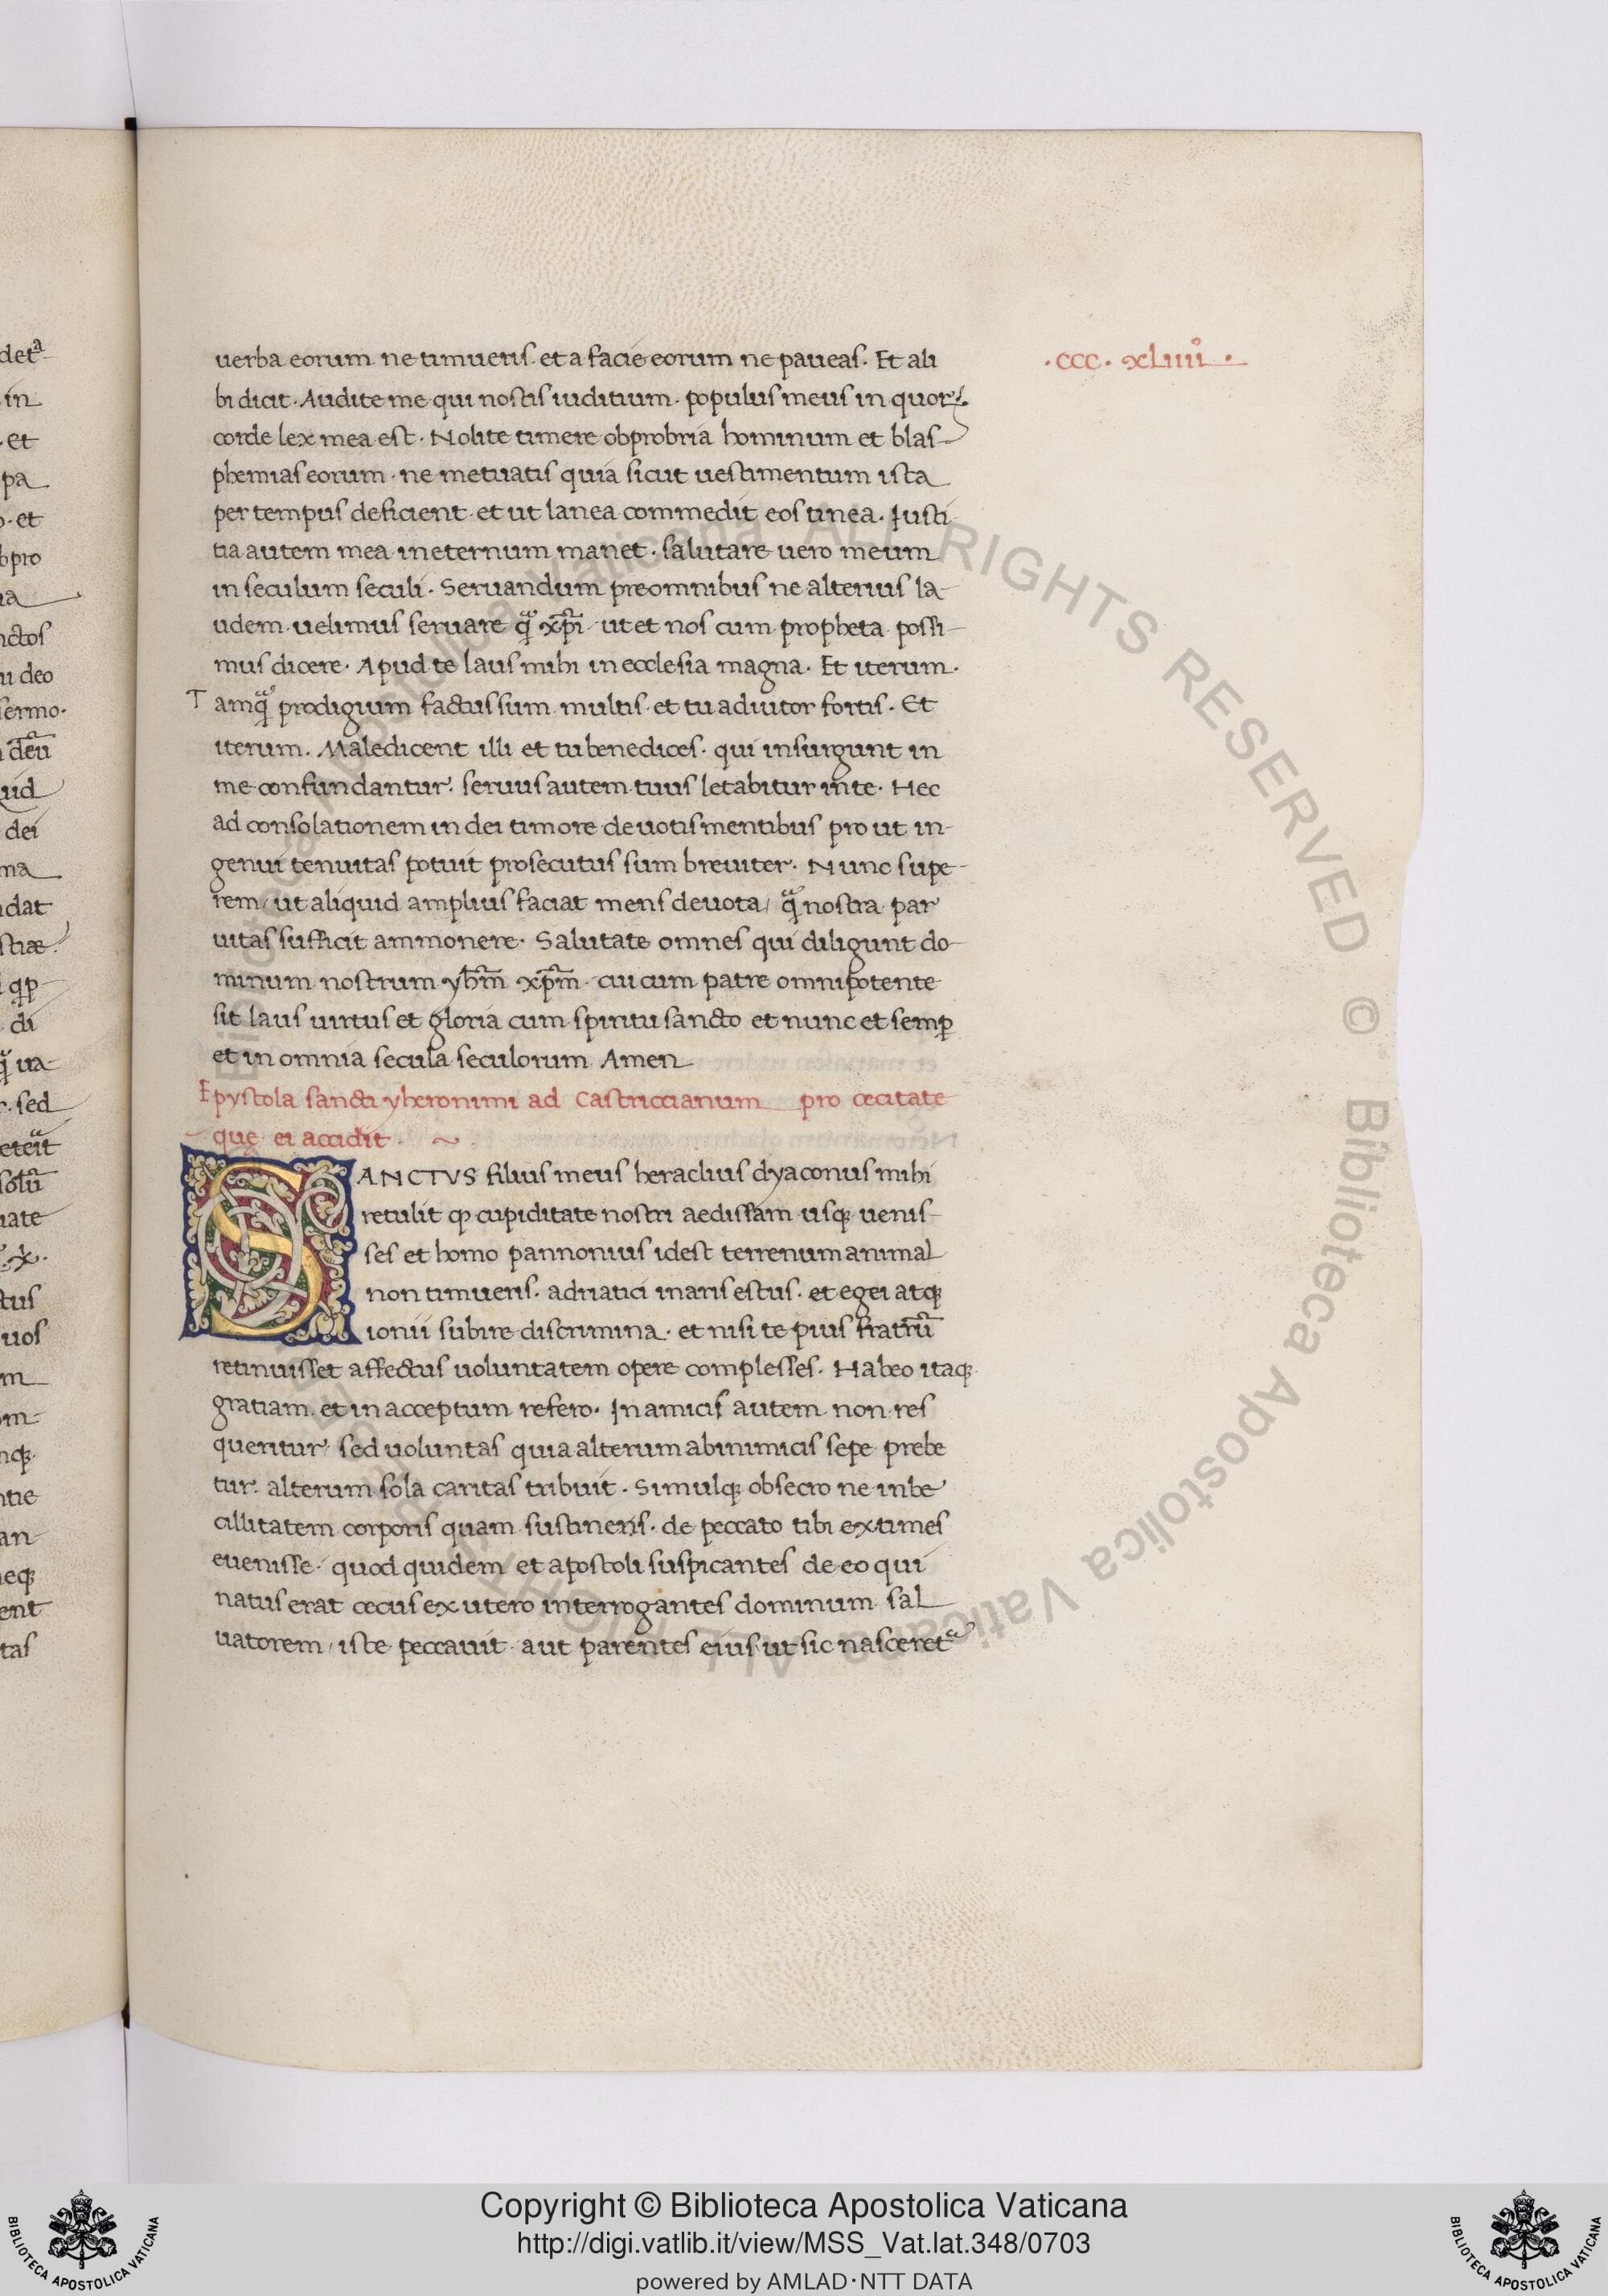 uerba eorum ne timueris. et a facie eorum ne paueas. Et ali
bi dicit. Audite me qui nostis iuditium. populus meus in quorꝝ
corde lex mea est. Nolite timere obprobria hominum et blas-
phemias eorum. ne metuatis quia sicut uestimentum ista
per tempus deficient. et ut lanea commedit eos tinea. Justi
tia autem mea in eternum manet. salutare uero meum
in seculum seculi. Seruandum pre omnibus ne alterius la-
udem uelimus seruare qᷓ xp̄i. ut et nos cum propheta possi-
mus dicere. Apud te laus mihi in ecclesia magna. Et iterum.
Tamqᷓ prodigium factus sum multis. et tu adiutor fortis. Et
iterum. Maledicent illi et tu benedices. qui insurgunt in
me confundantur. seruus autem tuus letabitur in te. Hec
ad consolationem in dei timore deuotis mentibus pro ut in-
genui tenuitas potuit prosecutus sum breuiter. Nunc supe-
rem / ut aliquid amplius faciat mens deuota / qᷓ nostra par
uitas sufficit ammonere. Salutate omnes qui diligunt do-
minum nostrum yħm̄ xp̄m̄. cui cum patre omnipotente
sit laus uirtus et gloria cum spiritu sancto et nunc et semꝑ
et in omnia secula seculorum Amen
Epystola sancti yheronimi ad Castriccianum pro cecitate
que ei accidit. ~
SANCTVS filius meus heraclius dyaconus mihi
retulit ꝙ cupiditate nostri aedissam usqꝫ uenis-
ses et homo pannonius idest terrenum animal
non timueris. adriatici maris estus. et egei atqꝫ
ionii subire discrimina. et nisi te pius fratrū
retinuisset affectus uoluntatem opere complesses. Habeo itaqꝫ
gratiam. et in acceptum refero. In amicis autem non res
queritur sed uoluntas quia alterum ab inimicis sepe prebe
tur. alterum sola caritas tribuit. Simulqꝫ obsecro ne inbe
cillitatem corporis quam sustineris. de peccato tibi extimes
euenisse. quod quidem et apostoli suspicantes de eo qui
natus erat cecus ex utero interrogantes dominum sal
uatorem / iste peccauit aut parentes eius ut sic nasceretᷓ
.ccc. xliiii°.
Copyright © Biblioteca Apostolica Vaticana
http://digi.vatlib.it/view/MSS_Vat.lat.348/0703
powered by AMLAD·NTT DATA
BIBLIOTECA APOSTOLICA VATICANA
BIBLIOTECA APOSTOLICA VATICANA
Biblioteca Apostolica Vaticana ALL RIGHTS RESERVED © Biblioteca Apostolica Vaticana